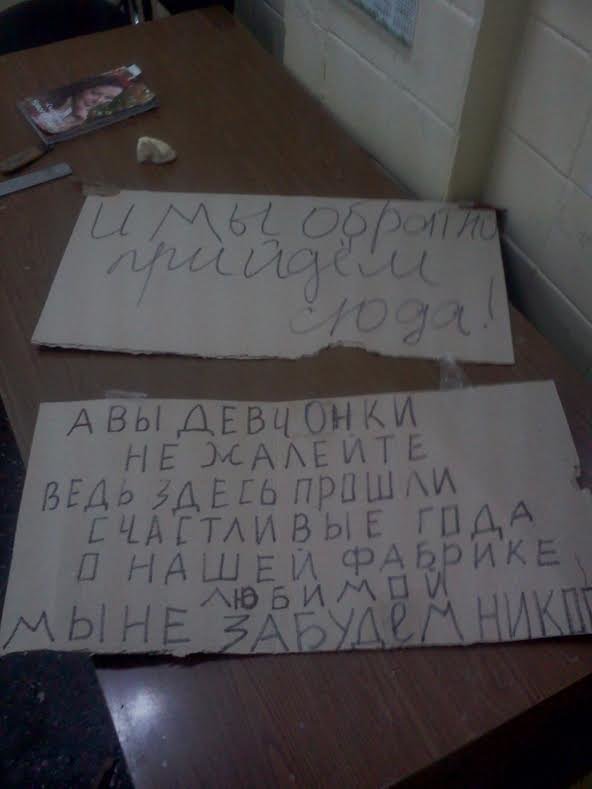 и мы обратно
прийдём
сюда!
А ВЫ ДЕВЧОНКИ
НЕ ЖАЛЕЙТЕ
ВЕДЬ ЗДЕСЬ ПРОШЛИ
СЧАСТЛИВЫЕ ГОДА
О НАШЕЙ ФАБРИКЕ
ЛЮБИМОЙ
МЫ НЕ ЗАБУДЕМ